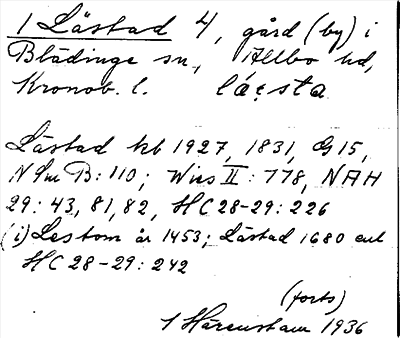 1 Låstad 4, gård (by) i
Blädinge sn, Allbo hd,
Kronob. l. lá;sta
Låstad kb 1927, 1831, G 15,
N Sm B: 110; Wies II: 778, NAH
29: 43, 81, 82, HC 28-29: 226
(i) Lestom år 1453; Låstad 1680 enl
HC 28-29: 242
(forts)
I Härenstam 1936